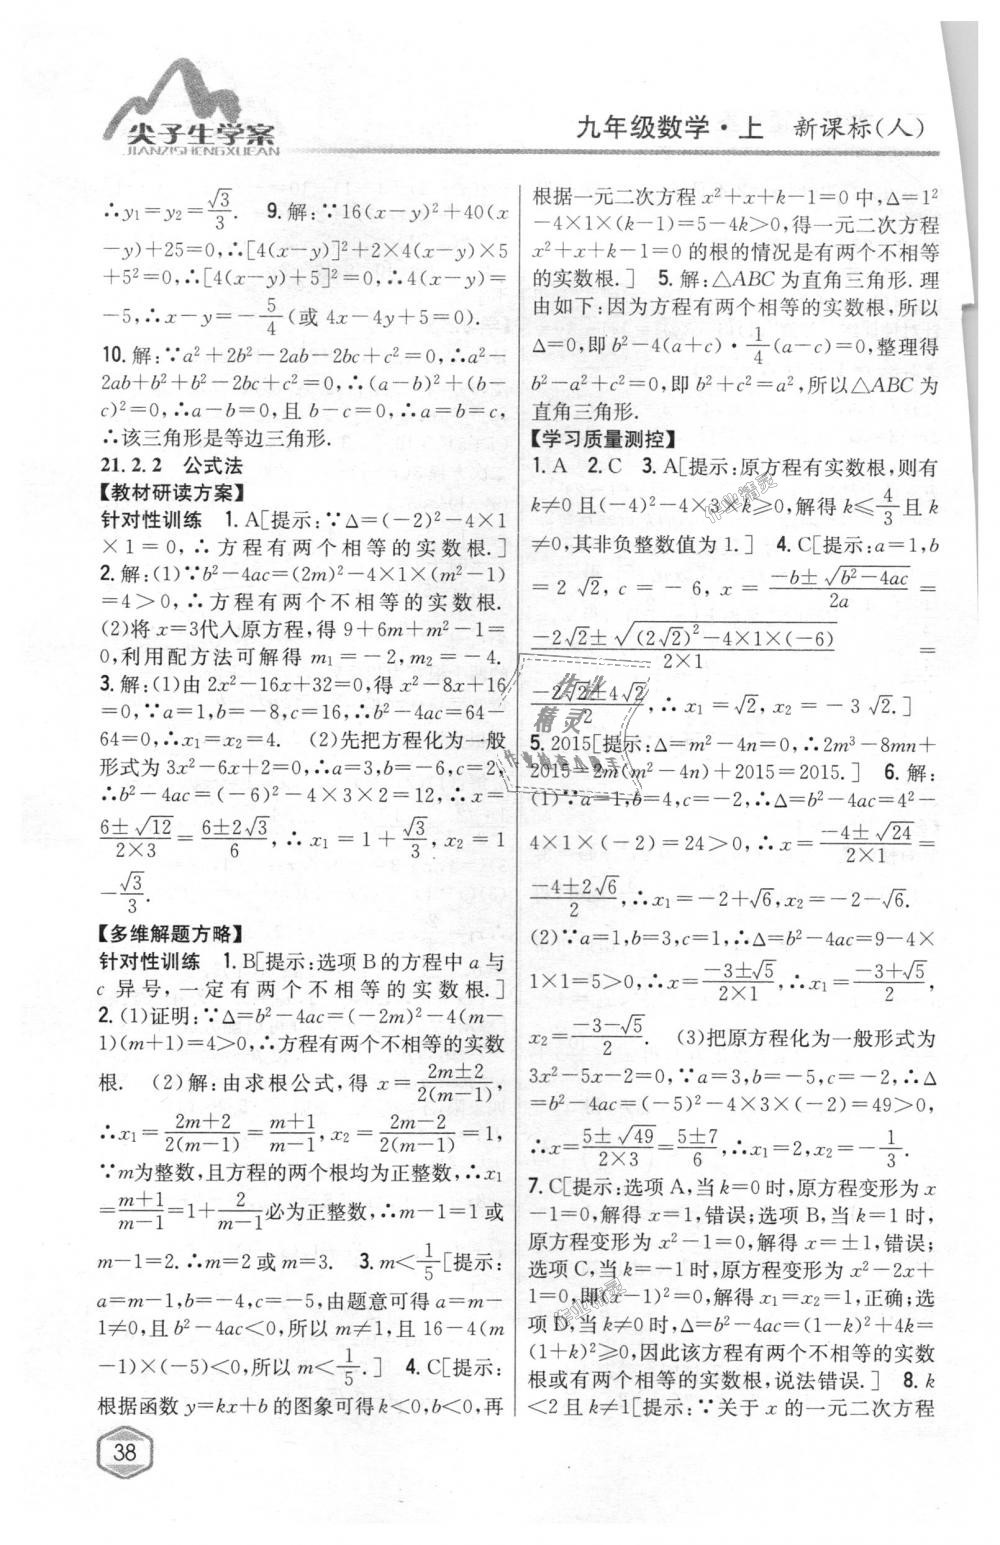 尖子生学案
JIANZISHENGXUEAN
九年级数学·上 新课标(人)
∴y₁=y₂=√3/3. 9.解:∵16(x-y)²+40(x
-y)+25=0,∴[4(x-y)]²+2×4(x-y)×5
+5²=0,∴[4(x-y)+5]²=0,∴4(x-y)=
-5,∴x-y=-5/4(或4x-4y+5=0).
10.解:∵a²+2b²-2ab-2bc+c²=0,∴a²-
2ab+b²+b²-2bc+c²=0,∴(a-b)²+(b-
c)²=0,∴a-b=0,且b-c=0,∴a=b=c,
∴该三角形是等边三角形.
21.2.2 公式法
【教材研读方案】
针对性训练 1.A[提示:∵Δ=(-2)²-4×1
×1=0,∴方程有两个相等的实数根.]
2.解:(1)∵b²-4ac=(2m)²-4×1×(m²-1)
=4>0,∴方程有两个不相等的实数根.
(2)将x=3代入原方程,得9+6m+m²-1=
0,利用配方法可解得m₁=-2,m₂=-4.
3.解:(1)由2x²-16x+32=0,得x²-8x+16
=0,∵a=1,b=-8,c=16,∴b²-4ac=64-
64=0,∴x₁=x₂=4. (2)先把方程化为一般
形式为3x²-6x+2=0,∴a=3,b=-6,c=2,
∴b²-4ac=(-6)²-4×3×2=12,∴x=
(6±√12)/(2×3)=(6±2√3)/6,∴x₁=1+√3/3,x₂=1
-√3/3.
【多维解题方略】
针对性训练 1.B[提示:选项B的方程中a与
c异号,一定有两个不相等的实数根.]
2.(1)证明:∵Δ=b²-4ac=(-2m)²-4(m-
1)(m+1)=4>0,∴方程有两个不相等的实数
根. (2)解:由求根公式,得x=(2m±2)/(2(m-1)),
∴x₁=(2m+2)/(2(m-1))=(m+1)/(m-1),x₂=(2m-2)/(2(m-1))=1,
∵m为整数,且方程的两个根均为正整数,∴x₁
=(m+1)/(m-1)=1+2/(m-1)必为正整数,∴m-1=1或
m-1=2.∴m=2或m=3. 3.m<1/5[提示:
a=m-1,b=-4,c=-5,由题意可得a=m-
1≠0,且b²-4ac<0,所以m≠1,且16-4(m
-1)×(-5)<0,所以m<1/5.] 4.C[提示:
根据函数y=kx+b的图象可得k<0,b<0,再
38
根据一元二次方程x²+x+k-1=0中,Δ=1²
-4×1×(k-1)=5-4k>0,得一元二次方程
x²+x+k-1=0的根的情况是有两个不相等
的实数根.] 5.解:△ABC为直角三角形.理
由如下:因为方程有两个相等的实数根,所以
Δ=0,即b²-4(a+c)·1/4(a-c)=0,整理得
b²-a²+c²=0,即b²+c²=a²,所以△ABC为
直角三角形.
【学习质量测控】
1.A 2.C 3.A[提示:原方程有实数根,则有
k≠0且(-4)²-4×3×k≥0,解得k≤4/3且k
≠0,其非负整数值为1.] 4.C[提示:a=1,b
=2√2,c=-6,x=(-b±√(b²-4ac))/2a=
(-2√2±√((2√2)²-4×1×(-6)))/(2×1)=
(-2√2±4√2)/2,∴x₁=√2,x₂=-3√2.]
5.2015[提示:Δ=m²-4n=0,∴2m³-8mn+
2015=2m(m²-4n)+2015=2015.] 6.解:
(1)∵a=1,b=4,c=-2,∴Δ=b²-4ac=4²-
4×1×(-2)=24>0,∴x=(-4±√24)/(2×1)=
(-4±2√6)/2,∴x₁=-2+√6,x₂=-2-√6.
(2)∵a=1,b=3,c=1,∴Δ=b²-4ac=9-4×
1×1=5>0,∴x=(-3±√5)/(2×1),∴x₁=(-3+√5)/2,
x₂=(-3-√5)/2. (3)把原方程化为一般形式为
3x²-5x-2=0,∵a=3,b=-5,c=-2,∴Δ
=b²-4ac=(-5)²-4×3×(-2)=49>0,
∴x=(5±√49)/(2×3)=(5±7)/6,∴x₁=2,x₂=-1/3.
7.C[提示:选项A,当k=0时,原方程变形为x
-1=0,解得x=1,错误;选项B,当k=1时,
原方程变形为x²-1=0,解得x=±1,错误;
选项C,当k=-1时,原方程变形为x²-2x+
1=0,即(x-1)²=0,解得x₁=x₂=1,正确;选
项D,当k≠0时,Δ=b²-4ac=(1-k)²+4k=
(1+k)²≥0,因此该方程有两个不相等的实数
根或有两个相等的实数根,说法错误.] 8.k
<2且k≠1[提示:∵关于x的一元二次方程
作业精灵
作业
精灵
作业精灵